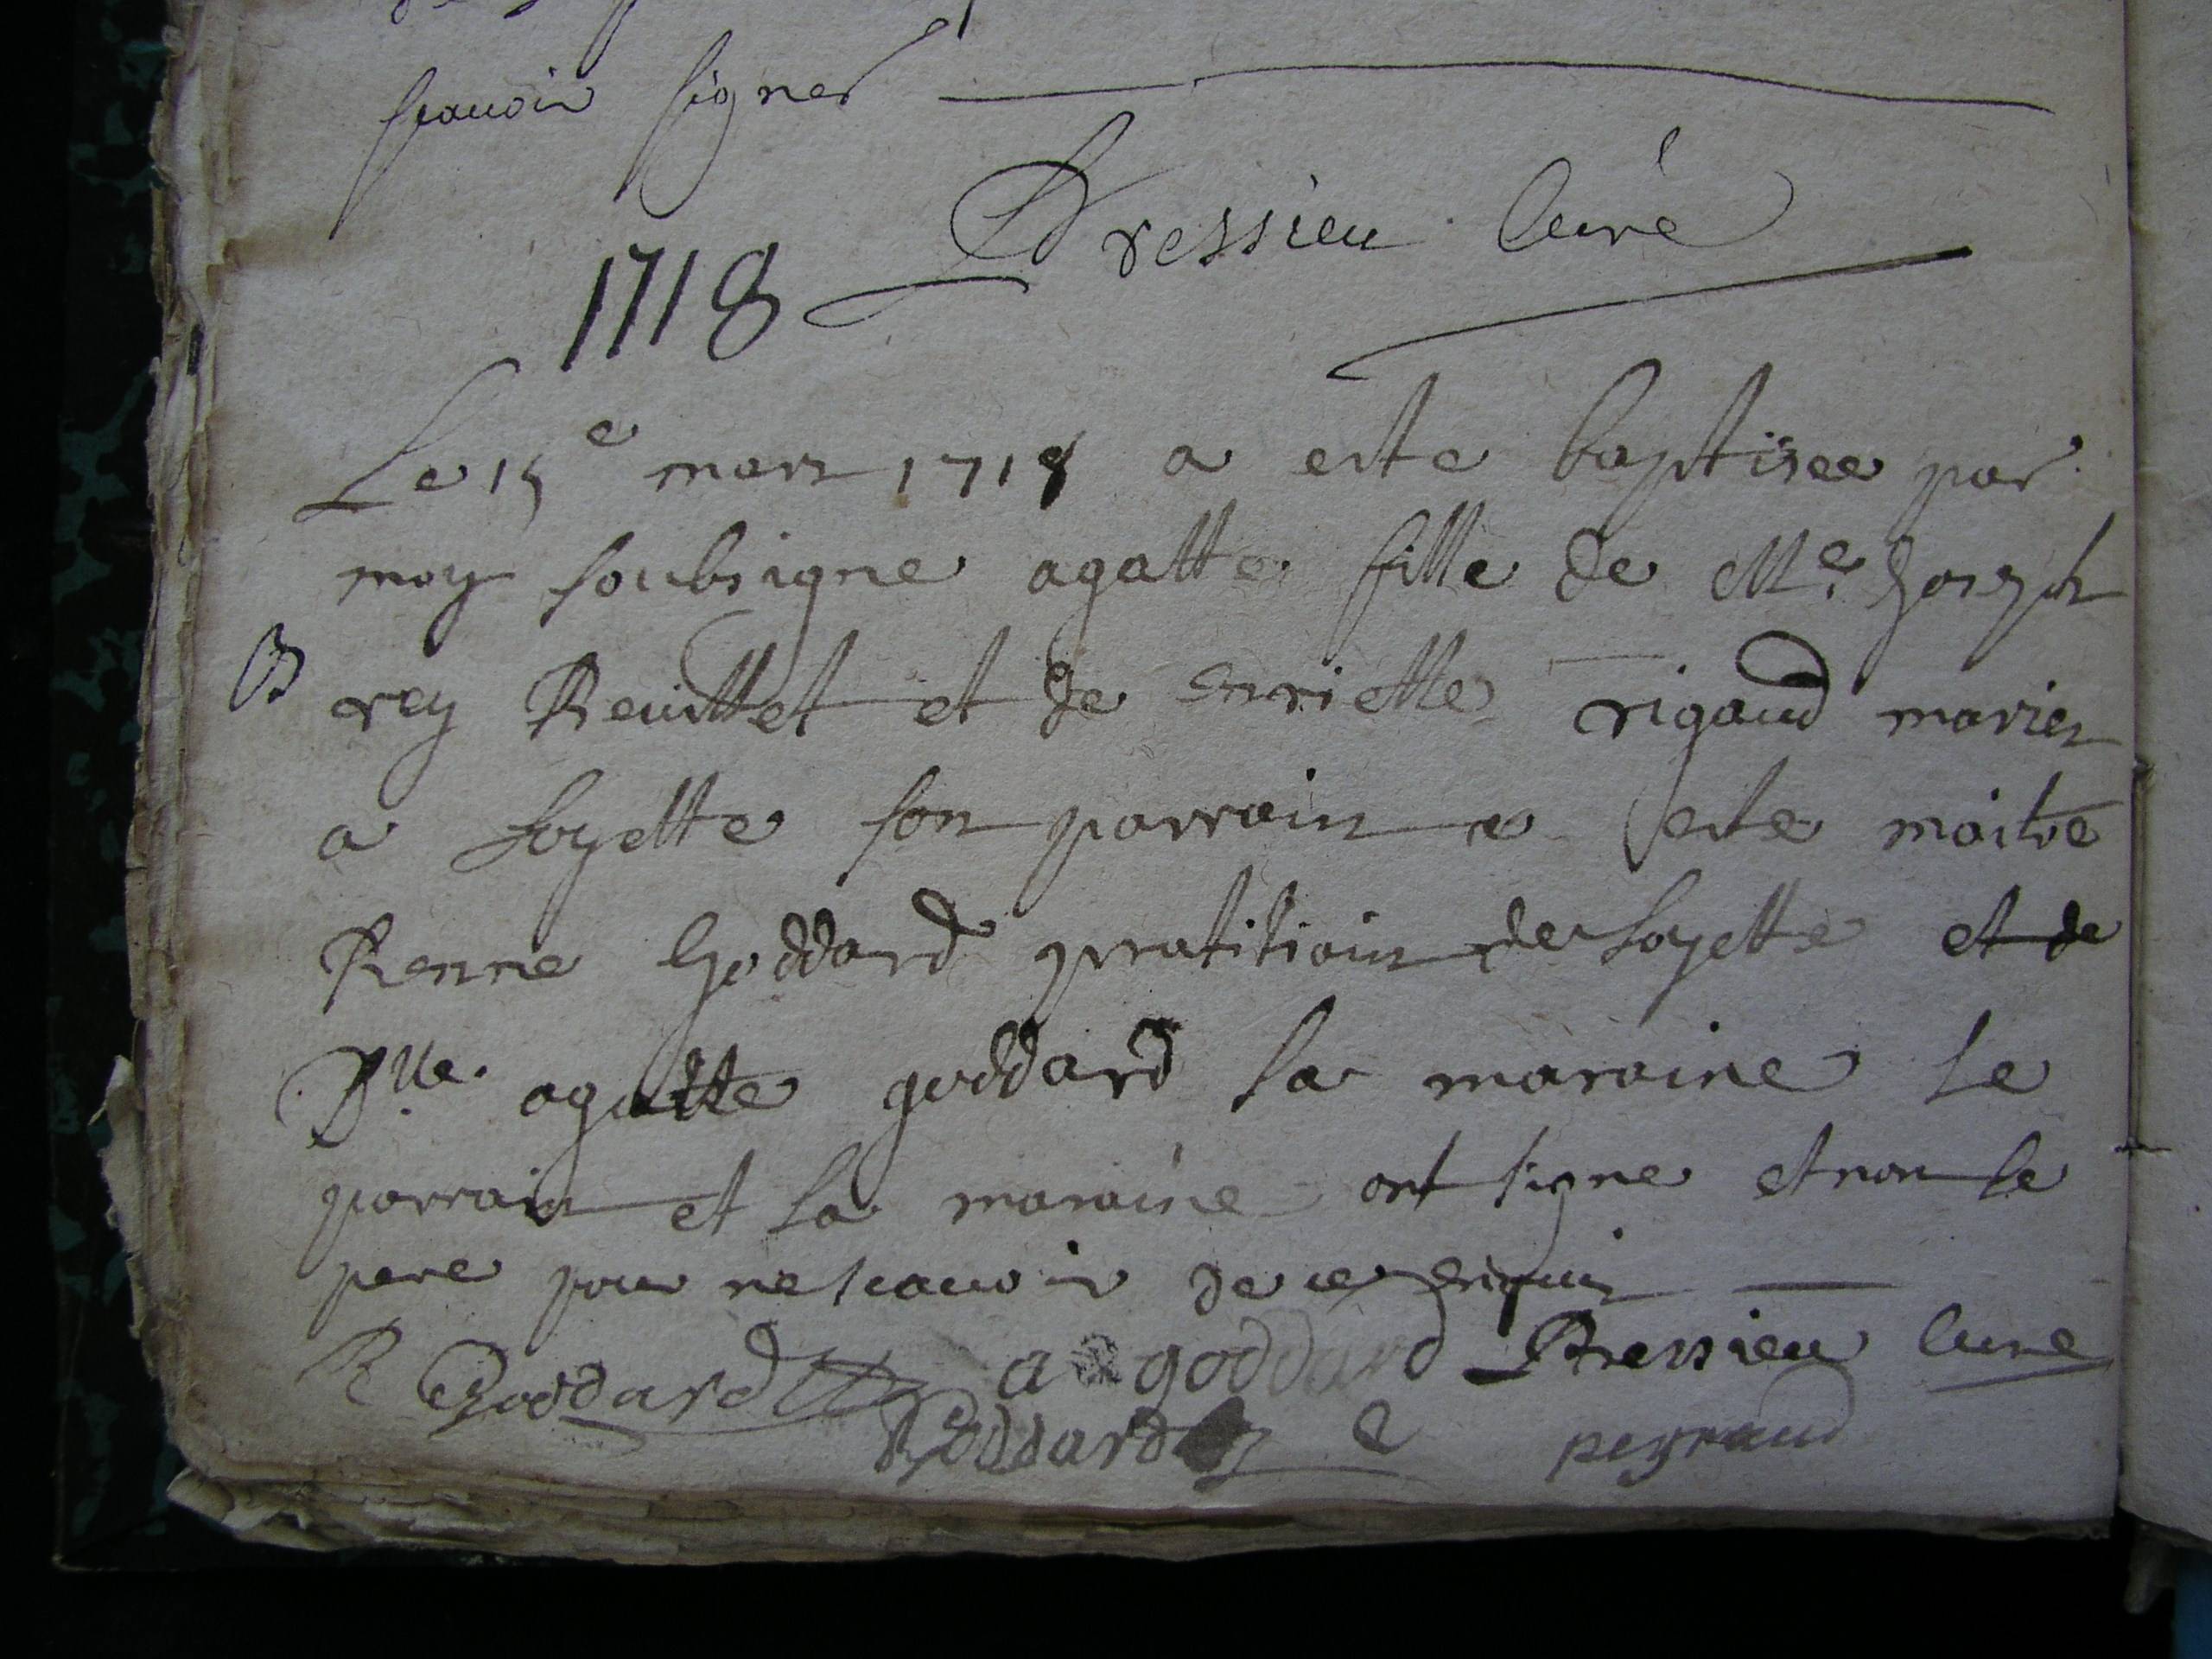 scavoir signer
Dressieu Curé
1718
Le 15e mars 1718 a este baptisee par
moy soubsigne agatte fille de Me Joseph
B rey Reuittet et de enriette rigaud maries
a Loyette son parrain a este maitre
Renne Goddard pratitiain de Loyette et de
Dlle. agatte goddard la maraine le
parrain et la maraine ont signe et non le
pere pour ne scauoir de ce enquis
R Goddard a goddard Dressieu Cure
Goddard peyraud